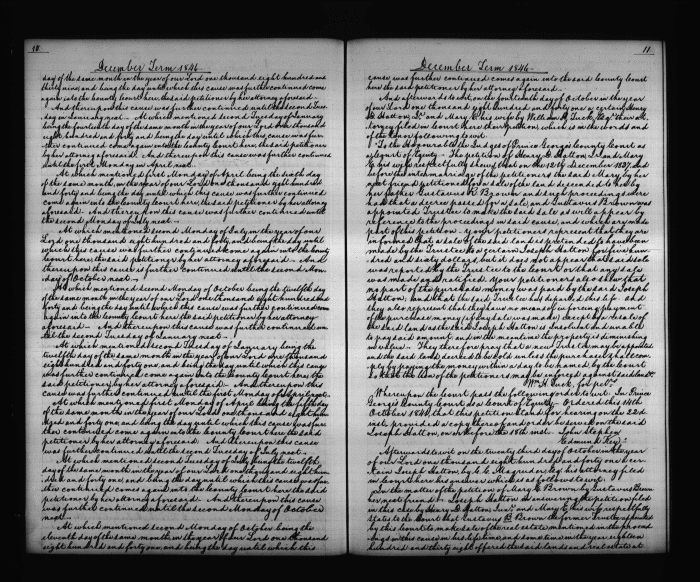 10.
December Term 1846
day of the same month in the year of our Lord one thousand eight hundred and
thirty nine, and being the day until which this cause was further continued come
again into the County Court here, the said petitioner by her attorney aforesaid.
And thereupon this cause was further continued until the second Tues-
day in January next. At which mentioned second Tuesday of January
being the fourteenth day of the same month in the year of our Lord one thousand
eight hundred and forty and being the day until which this cause was fur-
ther continued come again into the County Court here, the said petitioner
by her attorney aforesaid. And thereupon this cause was further continued
until the first Monday in April next.
At which mentioned first Monday of April being the sixth day
of the same month, in the year of our Lord one thousand eight hundred
and forty and being the day until which this cause was further continued
come again into the County Court here, the said petitioner by her attorney
aforesaid. And thereupon this cause was further continued until
the second Monday of July next.
At which mentioned second Monday of July in the year of our
Lord one thousand eight hundred and forty, and the day until
which this cause was further continued come again into the County
Court here, the said petitioner by her attorney aforesaid. And
thereupon this cause was further continued until the second Mon-
day of October next.
At which mentioned second Monday of October being the twelfth day
of the same month in the year of our Lord one thousand eight hundred and
forty and being the day until which this cause was further continued come
again into the County Court here, the said petitioner by her attorney
aforesaid. And thereupon this cause was further continued un-
til the second Tuesday of January next.
At which mentioned second Tuesday of January being the
twelfth day of the same month in the year of our Lord one thousand
eight hundred and forty one, and being the day until which this cause
was further continued come again into the County Court here, the
said petitioner by her attorney aforesaid. And thereupon this
cause was further continued until the first Monday of April next.
At which mentioned first Monday of April being the fifth day
of the same month in the year of our Lord one thousand and eight hun-
dred and forty one, and being the day until which this cause was fur-
ther continued come again into the County Court here, the said
petitioner by her attorney aforesaid. And thereupon this cause
was further continued until the second Tuesday of July next.
At which mentioned second Tuesday of July being the
day of the same month in the year of our Lord one thousand eight hun-
dred and forty one and being the day until which this cause was fur-
ther continued come again into the County Court here, the said
petitioner by her attorney aforesaid. And thereupon this cause
was further continued until the second Monday of October
next.
At which mentioned second Monday of October being the
eleventh day of the same month in the year of our Lord one thousand
eight hundred and forty one, and being the day until which this
11.
December Term 1846.
cause was further continued comes again into the said County Court
here the said petitioner by her attorney aforesaid.
And afterwards to wit, on the fourteenth day of October in the year
of our Lord one thousand eight hundred and forty one a certain Henry
D. Hatton Jr. and Mary E. his wife by William H. Tuck, Esqr. their at-
torney filed in Court here their petition, which is in the words and
of the tenor following to wit.
"To the Honourable the Judges of Prince George's County Court as
a Court of Equity. The petition of Henry D. Hatton Jr. and Mary
E. his wife respectfully shews that on the 12th December 1837, and
before the intermarriage of the petitioners the said Mary by her
next friend petitioned for a sale of the land descended to her by
her father Gustavus R. Brown and such proceedings were
had that a decree passed for a sale, and Gustavus Brown was
appointed Trustee to make the said sale as will appear by
reference to the proceedings in said cause, and which are made
part of this petition. Your petitioners represent that they are
informed that a sale of the said land is pretended to have been
made by the Trustee to a certain Joseph Hatton for five hun-
dred and sixty dollars, but it does not appear that the said sale
was reported by the Trustee to the Court or that any sale
was made and ratified. Your petitioners also shew that
no part of the purchase money was paid by the said Joseph
Hatton, and that the said Trustee has departed this life. And
they also represent that they have no means of enforcing payment
of the purchase money (if any sale was made) except by a resale of
the said land as the said Joseph Hatton is Insolvent and unable
to pay said amount, and in the meantime the property is diminishing
in value. They therefore pray that a new Trustee may be appointed
and the said land decreed to be sold unless the purchaser shall com-
ply by paying the money within a day to be named by the Court
so that the lien of the petitioners may be enforced against said land.
Wm. H. Tuck, for petrs.
Whereupon the Court pass the following order to wit. In Prince
George's County Court, a Court of Equity. Ordered this 14th
October 1841, that this petition stand for hearing on the 22d
inst. provided a copy thereof and order be served on the said
Joseph Hatton, on or before the 18th inst. John Stephen
Edmund Key.
Afterwards to wit on the twenty third day of October in the year
of our Lord one thousand eight hundred and forty one a cer-
tain Joseph Hatton by C. C. Magruder, Esq. his attorney filed
in Court here his answer which is as follows to wit,
In the matter of the petition of Mary E. Brown by Gustavus Brown
her next friend. Joseph Hatton in answering the petition filed
in this case by Henry D. Hatton Junr. and Mary E. his wife respectfully
states to the Court that Gustavus Brown the former Trustee appointed
by this Court to make sale of the real estate mentioned in the proceed-
ings in this cause in his lifetime, and sometime in the year eighteen
hundred and thirty eight offered the said lands and real estate at